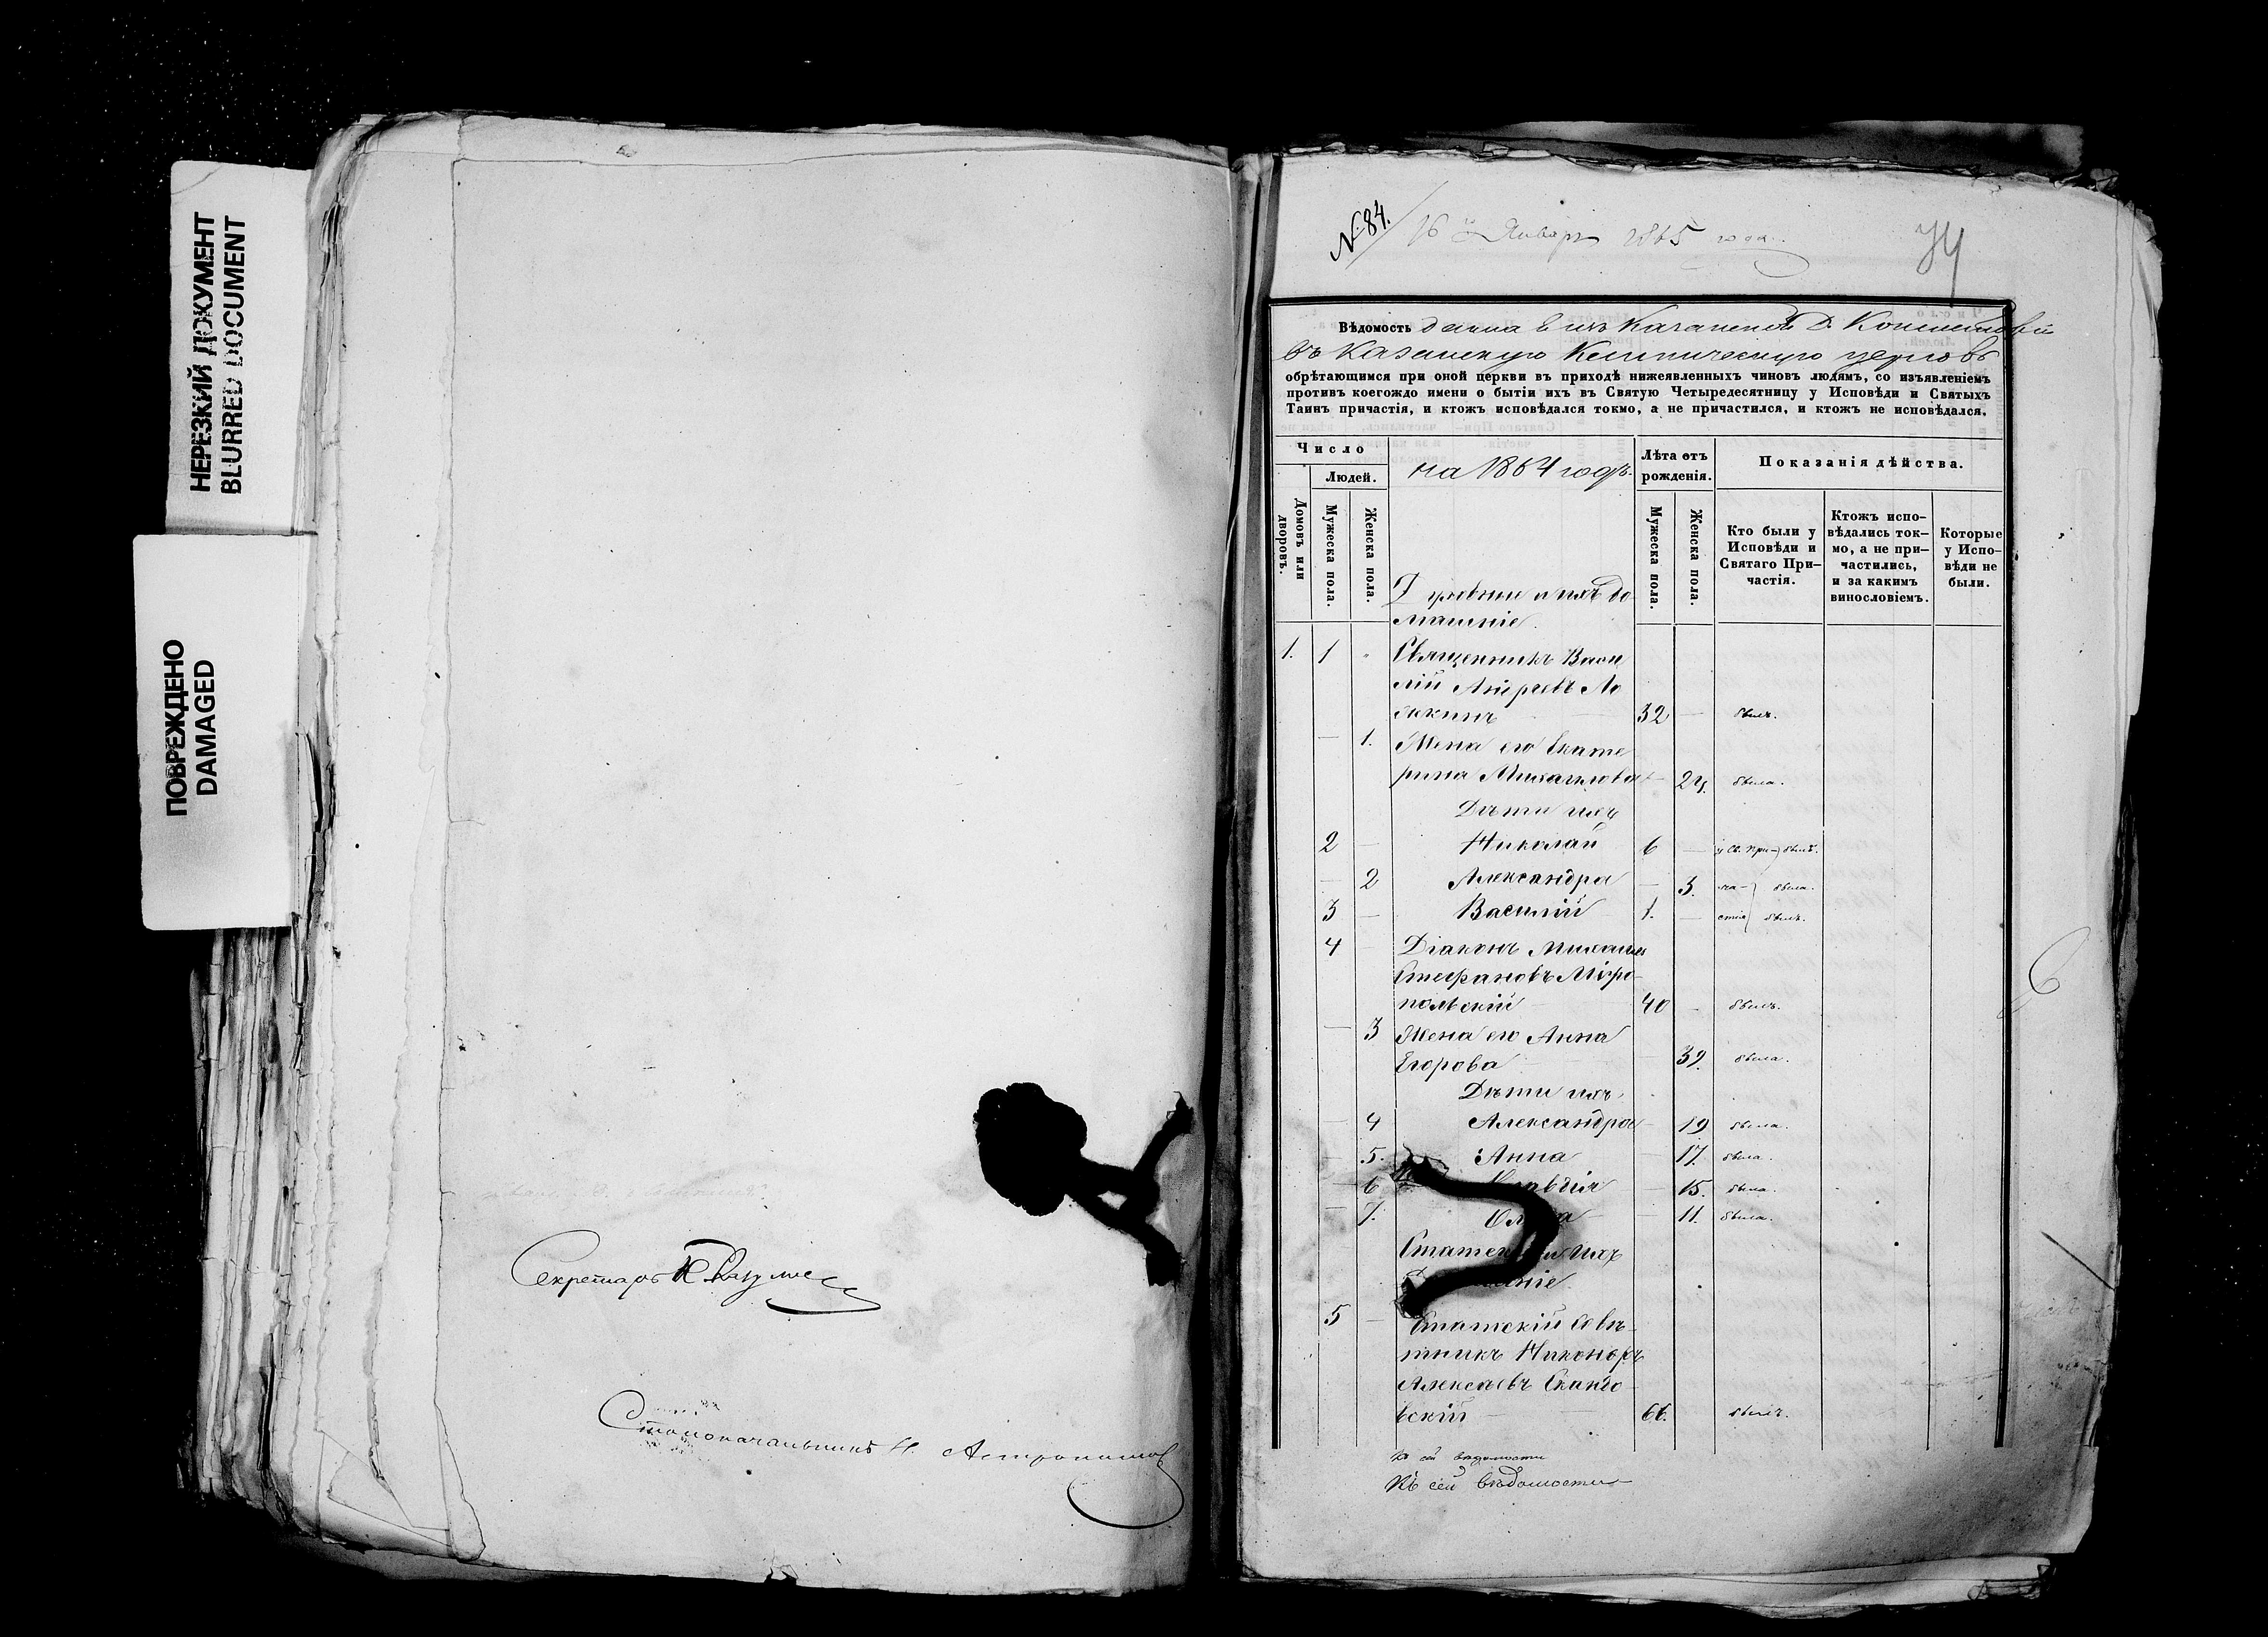 НЕРЕЗКИЙ ДОКУМЕНТ
BLURRED DOCUMENT
ПОВРЕЖДЕНО
DAMAGED
Секретарь
Столоначальникъ Н.
№ 84.
16 Января 1865 года.
Вѣдомость дана изъ Казанской Д. Консисторіи
въ Казанскую Клиническую церковь
обрѣтающимся при оной церкви въ приходѣ нижеявленныхъ чиновъ людямъ, со изъявленіемъ
противъ коегождо имени о бытіи ихъ въ Святую Четыредесятницу у Исповѣди и Святыхъ
Таинъ причастія, и ктожъ исповѣдался токмо, а не причастился, и ктожъ не исповѣдался.
Число
Людей.
Домовъ или дворовъ.
Мужеска пола.
Женска пола.
на 1864 годъ.
Лѣта отъ рожденія.
Мужеска пола.
Женска пола.
Показанія дѣйства.
Кто были у Исповѣди и Святаго При-частія.
Ктожъ испо-вѣдались ток-мо, а не при-частились, и за какимъ винословіемъ.
Которые у Испо-вѣди не были.
и ихъ до
машніе.
1. 1 Священникъ Васи
лій Андреевъ
32 былъ.
1. Жена его Екате
рина Михаилова 24. была.
Дѣти ихъ
2 Николай 6 у Св. При- былъ.
2 Александра 3. ча- была.
3 Василій 1. стія былъ.
4 Діаконъ Михаилъ
Стефановъ Миро-
польскій 40 былъ.
3 Жена его Анна
Егорова 39. была.
Дѣти ихъ
4 Александра 19 была.
5. Анна 17. была.
6 Клавдія 15. была.
7. Ольга 11. была.
Статскіе и ихъ
домашніе
5 Статскій Совѣ-
тникъ Никаноръ
Алексѣевъ Скандо
вскій 66. былъ.
Къ сей вѣдомости
Къ сей вѣдомости